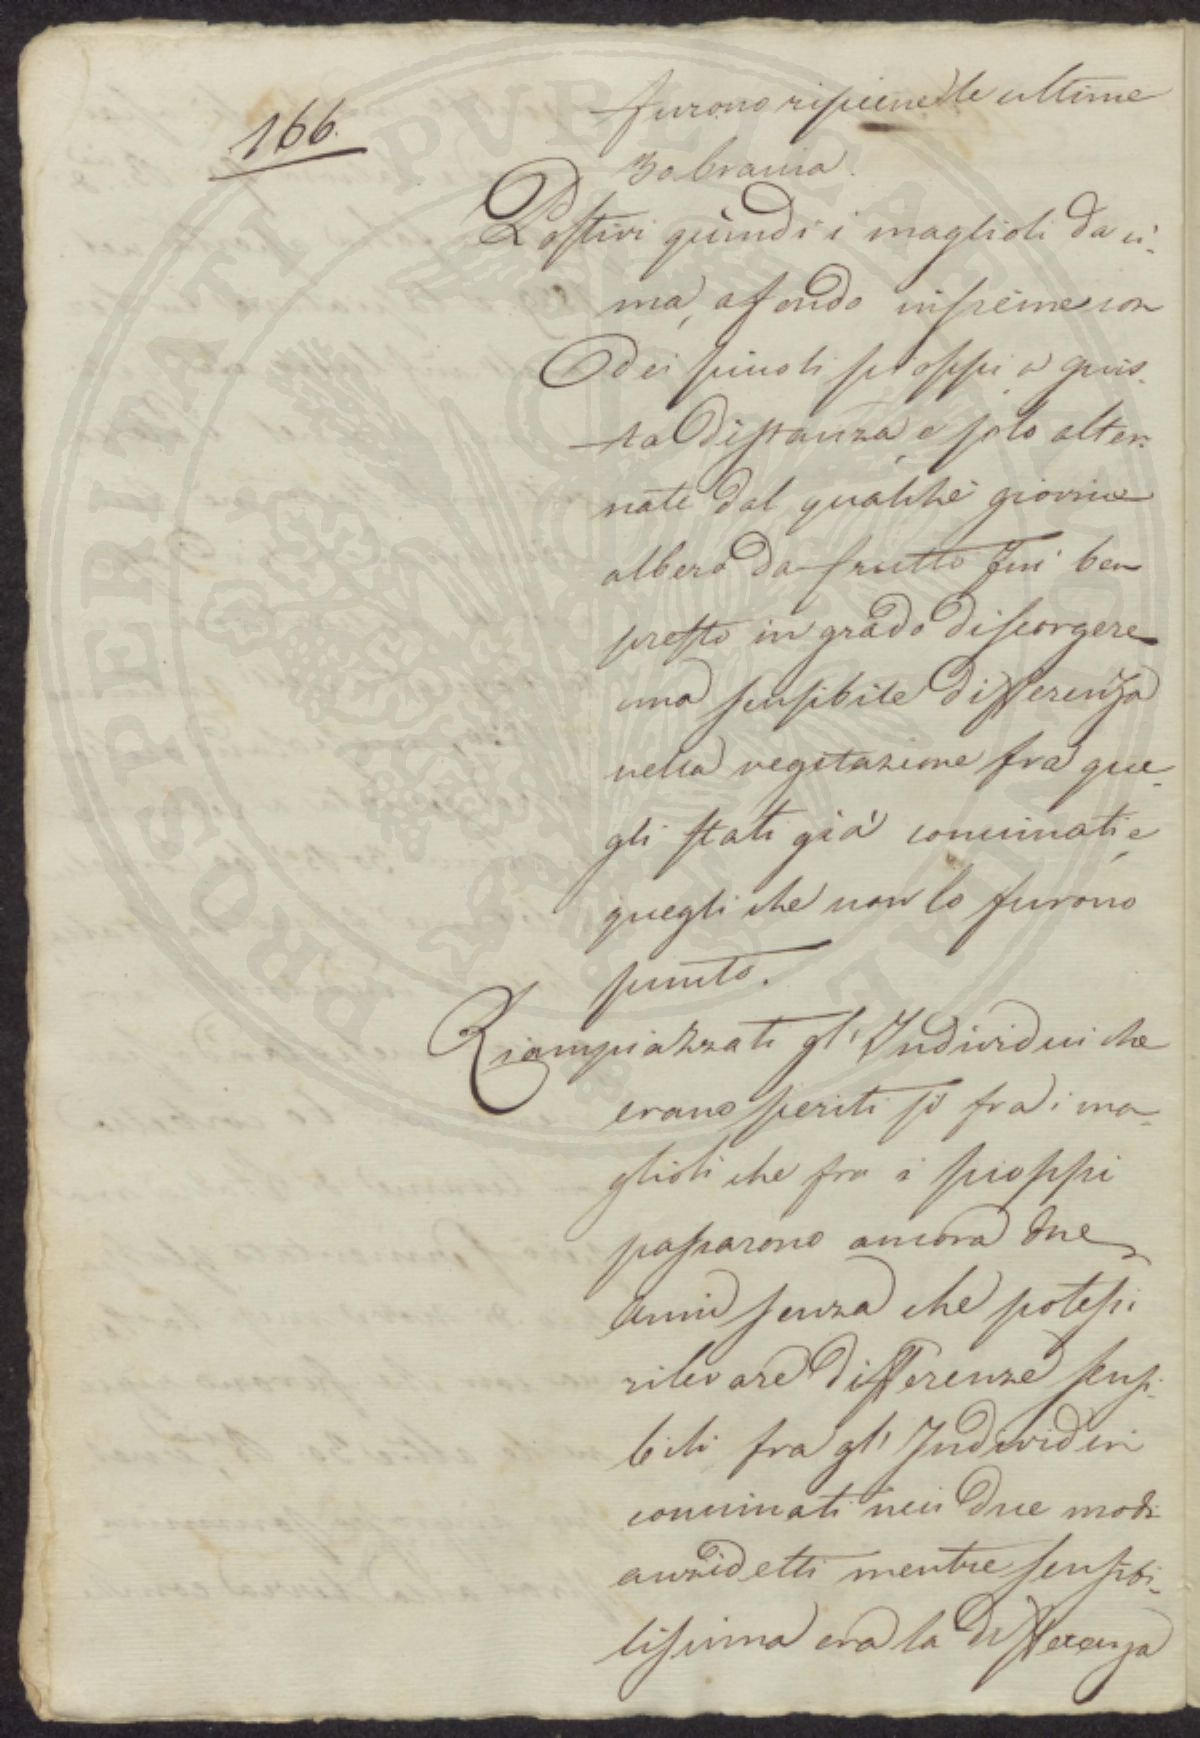 166.
furono ripiene le ultime
30 braccia.
Postivi quindi i maglioli da ci-
ma, a fondo insieme con
dei piccoli pioppi a gius-
ta distanza, e solo alter-
nate dal qualche giovine
albero da frutto fui ben
presto in grado di scorgere
una sensibile differenza
nella vegitazione fra que-
gli stati già concimati e
quegli che non lo furono
punto.
Riampiazzati gl' Individui che
erano periti sì fra i ma-
glioli che fra i pioppi
passarono ancora due
anni senza che potessi
rilevare differenze sensi-
bili fra gl' Individui
concimati nei due modi
anzidetti mentre sensibi-
lissima era la differenza
PROSPERITATI PVBLICAE